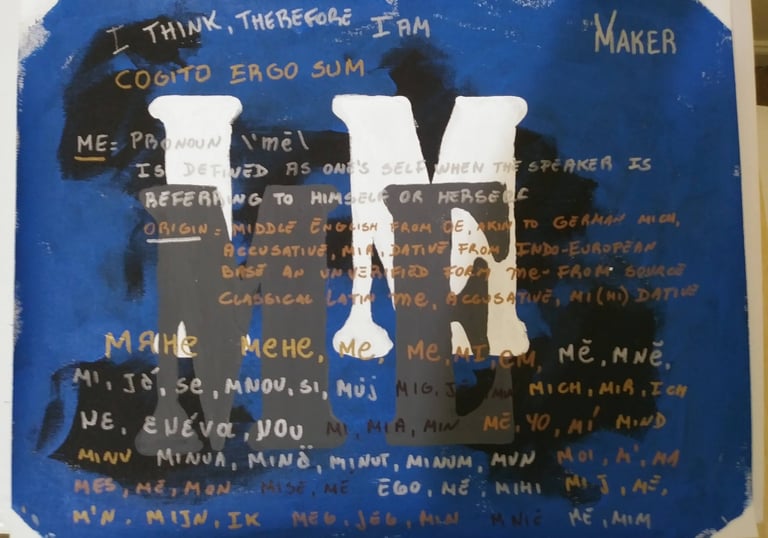 I THINK, THEREFORE I AM
MAKER
COGITO ERGO SUM
I M
ME
ME = PRONOUN \'mē\
IS DEFINED AS ONE'S SELF WHEN THE SPEAKER IS
REFERRING TO HIMSELF OR HERSELF
ORIGIN = MIDDLE ENGLISH FROM OE, AKIN TO GERMAN MICH,
ACCUSATIVE, MIR, DATIVE FROM INDO-EUROPEAN
BASE AN UNVERIFIED FORM me- FROM SOURCE
CLASSICAL LATIN me, ACCUSATIVE, MI(HI) DATIVE
МЯНЕ МЕНЕ, ME, ME, MI, EM, MĚ, MNĚ,
MI, JÁ, SE, MNOU, SI, MŮJ MIG, MICH, MIR, ICH
ΜΕ, ΕΜΈΝΑ, ΜΟΥ MI, MIA, MIN ME, YO, MÍ MIND
MINU MINUA, MINÄ, MINUT, MINUM, MUN MOI, M', MA
MES, ME, MON ME EGO, MĒ, MIHI MIJ, ME,
M'N, MIJN, IK MEG, JEG, MIN MNIE MIM